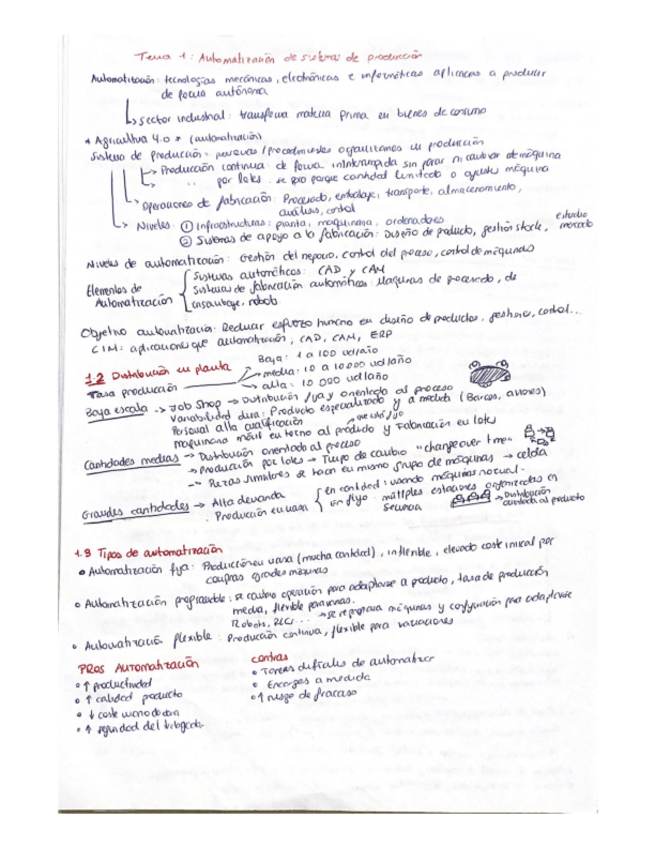 Tema 1: Automatización de sistemas de producción
Automatización: tecnologías mecánicas, electrónicas e informáticas aplicadas a producir
de forma autónoma
↳ sector industrial: transforma materia prima en bienes de consumo
* Agricultura 4.0 * (automatización)
Sistema de Producción: personas/procedimientos organizamos en producción
↳ Producción continua: de forma ininterrumpida sin parar ni cambiar de máquina
↳ " " por lotes: se para porque cantidad limitada o ajustes máquina
↳ Operaciones de fabricación: Procesado, embalaje, transporte, almacenamiento,
análisis, control
↳ Niveles: ① Infraestructuras: planta, maquinaria, ordenadores
② Sistemas de apoyo a la fabricación: Diseño de producto, gestión stock, estudio
mercado
Niveles de automatización: Gestión del negocio, control del proceso, control de máquinas
Elementos de
Automatización
Sistemas automáticos: CAD y CAM
Sistemas de fabricación automáticos: Máquinas de procesado, de
ensamblaje, robots
Objetivo automatización: Reducir esfuerzo humano en diseño de productos, gestionar, control...
CIM: aplicaciones que automatización, CAD, CAM, ERP
1.2 Distribución en planta
Tasa producción
Baja: 1 a 100 ud/año
→ media: 10 a 10000 ud/año
→ alta: 10 000 ud/año
Baja escala → Job Shop → Distribución fija y orientada al proceso
Variabilidad dura: Producto especializado y a medida (Barcos, aviones)
Personal alta cualificación
maquinaria móvil en torno al producto y Fabricación en lotes
Cantidades medias → Distribución orientada al proceso
→ Producción por lotes → Tiempo de cambio "changeover time"
→ Piezas similares se hacen en mismo grupo de máquinas → celda
Grandes cantidades → Alta demanda
· Producción en masa
en cantidad: usando máquinas normal.
en flujo: múltiples estaciones organizadas en
secuencia
→ Distribución
orientada al producto
1.3 Tipos de automatización
• Automatización fija: Producción en masa (mucha cantidad), inflexible, elevado coste inicial por
compras grandes máquinas
• Automatización programable: se cambia operación para adaptarse a producto, tasa de producción
media, flexible para varias.
Robots, PLC... → se reprograma máquinas y configuración para adaptarse
• Automatización flexible: Producción continua, flexible para variaciones
PROS AUTOMATIZACIÓN
• ↑ productividad
• ↑ calidad producto
• ↓ coste mano de obra
• ↑ seguridad del trabajador
contras
• Tareas difíciles de automatizar
• Encargos a medida
• ↑ riesgo de fracaso